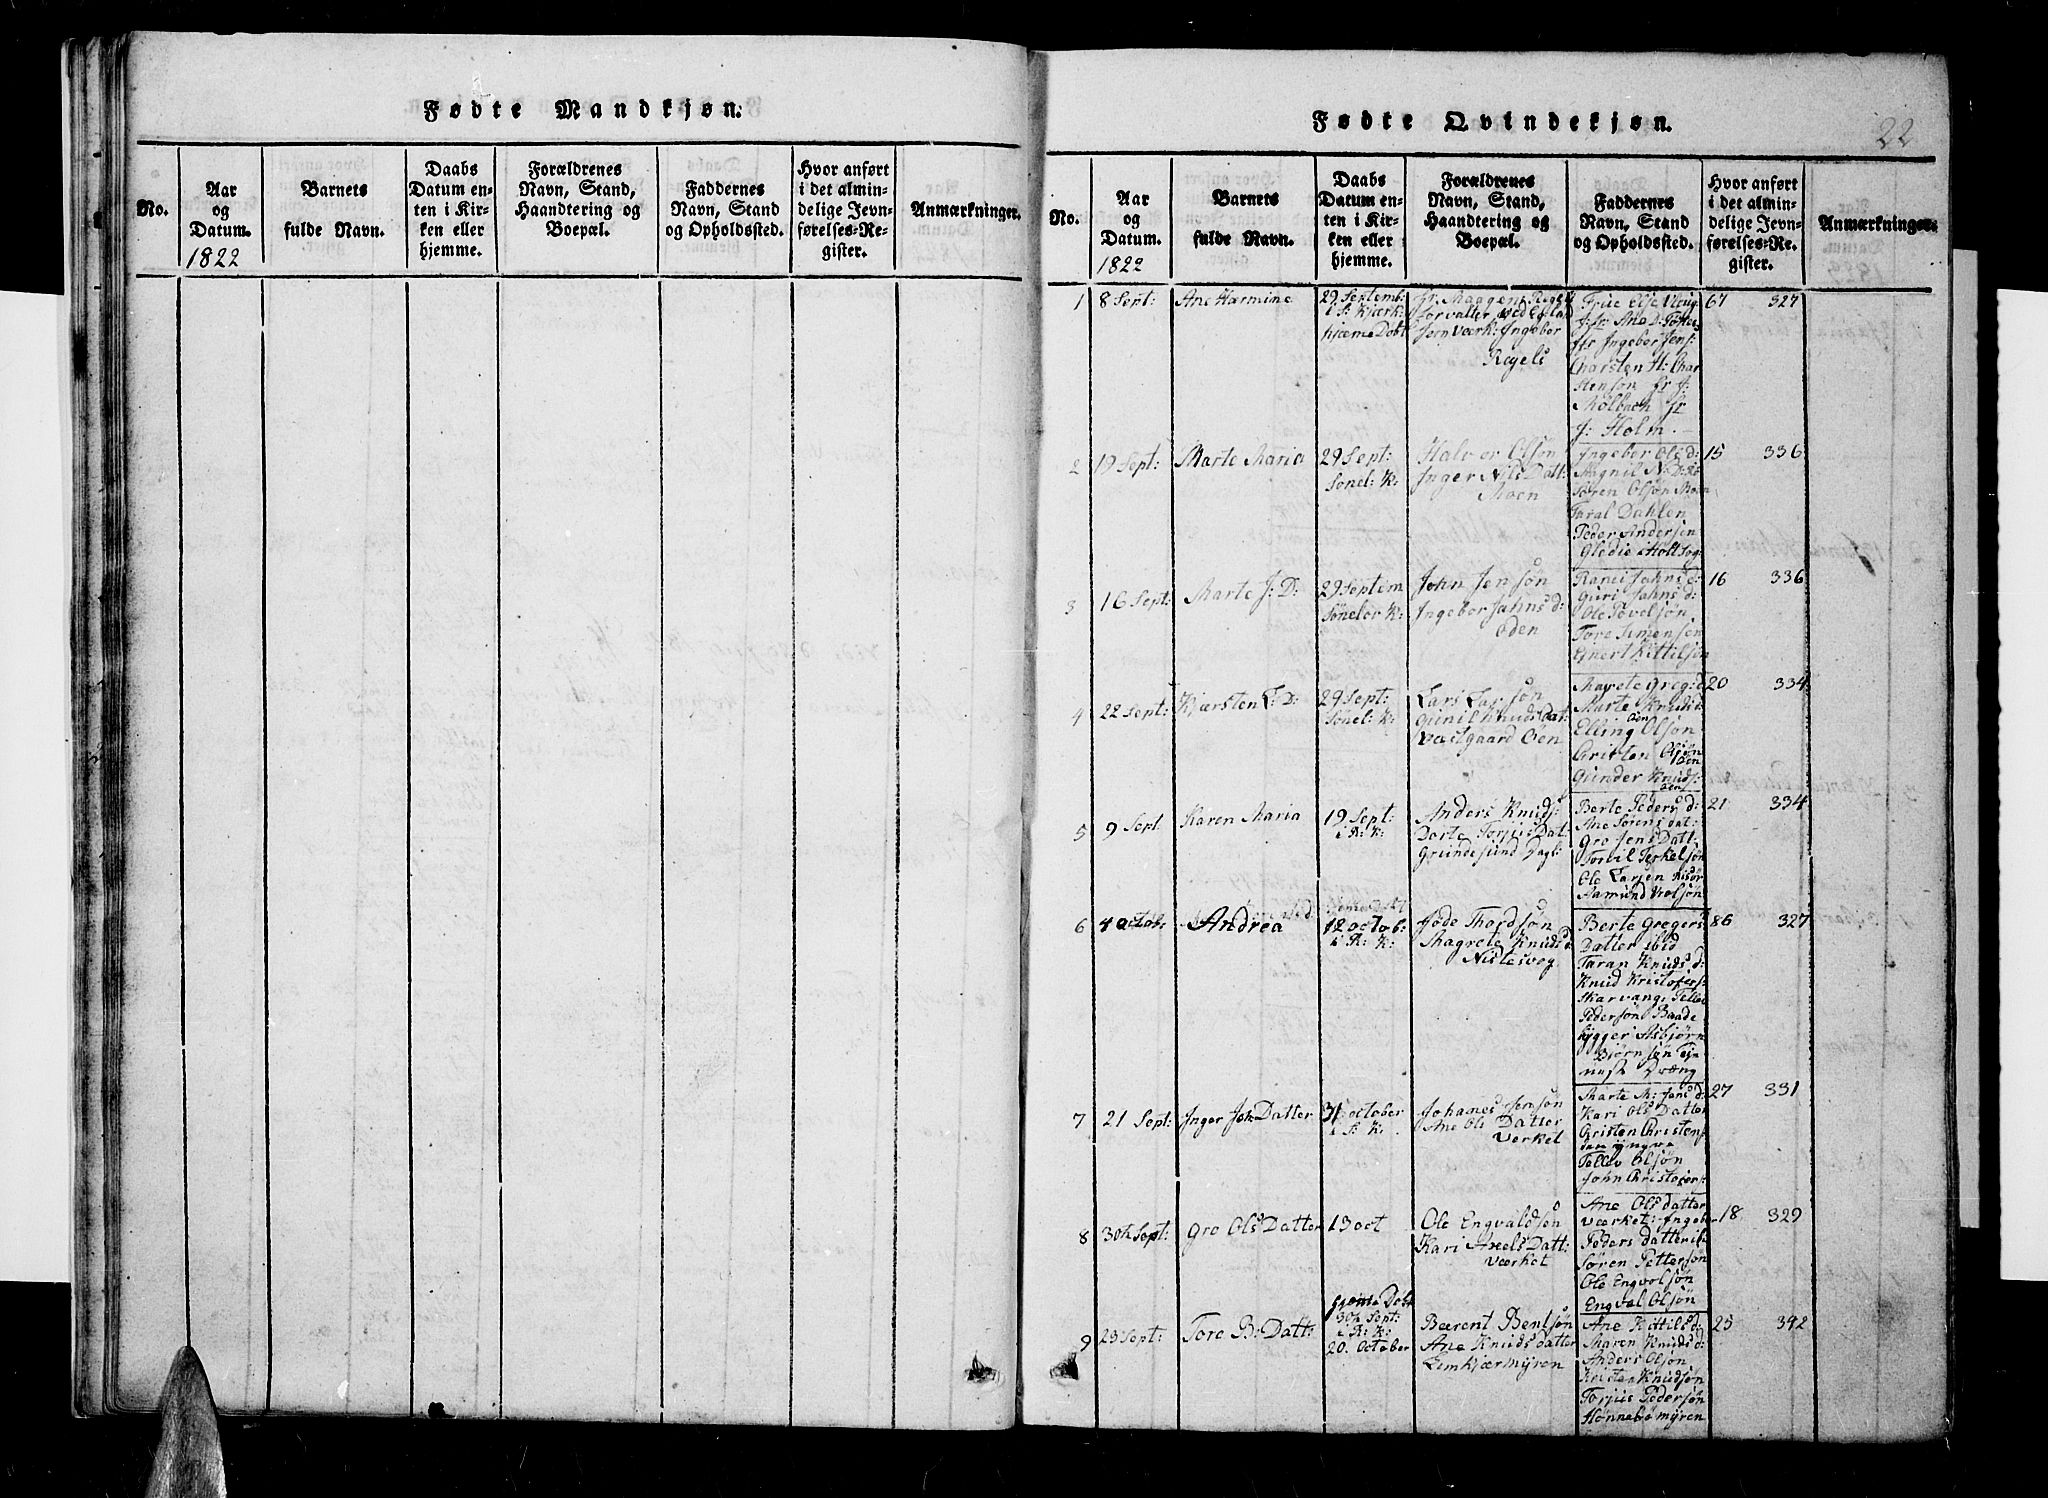 Fødte Mandkjøn.
No.
Aar
og
Datum.
1822
Barnets
fulde Navn.
Daabs
Datum en-
ten i Kir-
ken eller
hjemme.
Forældrenes
Navn, Stand,
Haandtering og
Boepæl.
Faddernes
Navn, Stand
og Opholdssted.
Hvor anført
i det almin-
delige Jevn-
førelses-Re-
gister.
Anmærkninger.
Fødte Qvindekjøn.
22
No.
Aar
og
Datum.
1822
Barnets
fulde Navn.
Daabs
Datum en-
ten i Kir-
ken eller
hjemme.
Forældrenes
Navn, Stand,
Haandtering og
Boepæl.
Faddernes
Navn, Stand
og Opholdssted.
Hvor anført
i det almin-
delige Jevn-
førelses-Re-
gister.
Anmærkninger.
1
8 Sept:
Ane Harmine
29 Septemb:
hjæme Dobt
Forvalter ved
Jern Værk: Ingebor
Regels
Frue Else
Ane D:
Ingebor Jens:
Charsten H: Char
stensøn
Molbach
J: Holm.
67 327
2
19 Sept:
Marte Maria
29 Sept:
Sønel: K:
Halvor Olsøn
Inger Nils Datt:
Moen
Ingebor Ols d:
Søren Olsøn Moen
Taral Dahlen
Peder Andersen
Gledie i Holt Sog:
15 336
3
16 Sept:
Marte J: D:
29 Septem
Sønelør K:
John Jensøn
Ingebor Jahns d:
Oden
Ranei Jahns d:
Guri Jahns d:
Ole Tovelsøn
Tore Simensen
Kittilsøn
16 336
4
22 Sept:
Kjersten L: D:
29 Sept:
Sønel: K:
Lars Larsøn
Gunil Knuds Dat:
Væstgaard Oen
Marete Greg: d
Marte Knuds d
Oen
Elling Olsøn
Cristen Olsøn
Oen
Gunder Knuds:
Oen
20 334
5
9 Sept
Karen Maria
19 Sept:
i R: K:
Anders Knuds:
Dorte Torjus Dat:
Grundesund Dagl:
Berte Peders d:
Ane Sørens dat:
Gro Jens Datt:
Torvil Terkelsøn
Ole Larsen
21 334
6
4 Octob:
Andrea
12 octob:
i R: K:
Jode Thordsøn
Magrete Knuds d:
Nistesvog
Berte Gregers
Datter ibid
Taran Knuds d:
Knud Kristofers:
Skarvang, Tellev
Pedersøn Baade
bygger Asbjørn
Bjørnsøn Tje
nest Dræng
86 327
7
21 Sept:
Inger Joh: Datter
31 october
Johanes Jensøn
Ane Ols Datter
Værket
Marte M: Jens d:
Kari Ols Datter
Cristen Christens:
Tellev Olsøn
John Christofer:
27 331
8
30te Sept:
Gro Ols Datter
13 oct
Ole Engvaldsøn
Kari Axels Datt:
Værket
Ane Ols datter
Værket: Ingebor
Peders datter
Søren Pettersøn
Ole Engvolsøn
Engval Olsøn
18 329
9
23 Sept:
Tore B: Datt:
hjemme Dobt
30te Sept:
i R: K:
20. October
Bærent Bentsøn
Ane Knuds datter
Limkjærmyren
Ane Kittils d:
Maren Knuds d:
Anders Olsøn
Kristen Knudsøn
Torjus Pedersøn
Hønnebømyren
25 342